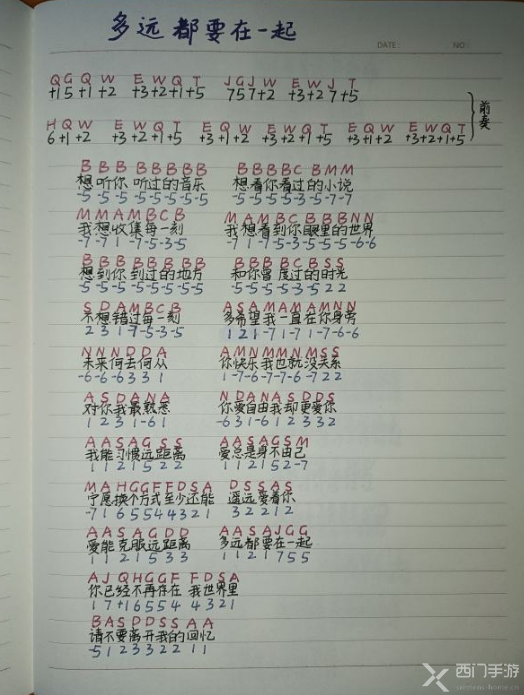 多远都要在一起
DATE NO
QGQW EWQT JGJW EWJT
+15+1+2 +3+2+1+5 757+2 +3+27+5
HQW EWQT EQW EWQT EQW EWQT
6+1+2 +3+2+1+5 +3+1+2 +3+2+1+5 +3+1+2 +3+2+1+5
前奏
BBB BBBBB BBBBCBMM
想听你 听过的音乐 想看你看过的小说
-5-5-5 -5-5-5-5-5 -5-5-5-5-3-5-7-7
MMAMBCB MAMBCBBBNN
我想收集每一刻 我想看到你眼里的世界
-7-71-7-5-3-5 -71-7-5-3-5-5-5-6-6
BBBBBBBB BBBBCBSS
想到你到过的地方 和你曾度过的时光
-5-5-5-5-5-5-5-5 -5-5-5-5-3-522
SDAMBCB ASAMAMAMNN
不想错过每一刻 多希望我一直在你身旁
231-7-5-3-5 121-71-71-7-6-6
NNNDDA AMNMMNMSS
未来何去何从 你快乐我也就没关系
-6-6-6331 1-7-6-7-7-6-722
ASDANA NDANASDDS
对你我最熟悉 你爱自由我却更爱你
1231-61 -631-612332
AASAGSS AASAGSM
我能习惯远距离 爱总是身不由己
1121522 112152-7
MAHGGFFDSA DSSAS
宁愿换个方式至少还能 遥远爱着你
-716554 4321 32212
AASAGDD AASAJGG
爱能克服远距离 多远都要在一起
1121533 1121755
AJQHGGFFDSA
你已经不再存在 我世界里
17+16554 4321
BASDDSSAA
请不要离开我的回忆
-512332211
西门手游